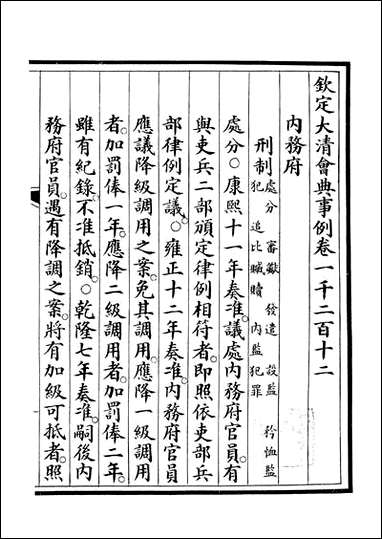 欽定大清會典事例卷一千二百十二
內務府
刑制處分 審讞 發遣 設監 矜恤監
犯 追比贓贖 內監犯罪
處分○康熙十一年奏准。議處內務府官員。有
與吏兵二部頒定律例相符者。即照依吏部兵
部律例定議。○雍正十二年奏准。內務府官員
應議降級調用之案。免其調用。應降一級調用
者。加罰俸一年。應降二級調用者。加罰俸二年。
雖有紀錄。不准抵銷。○乾隆七年奏准。嗣後內
務府官員。遇有降調之案。將有加級可抵者。照